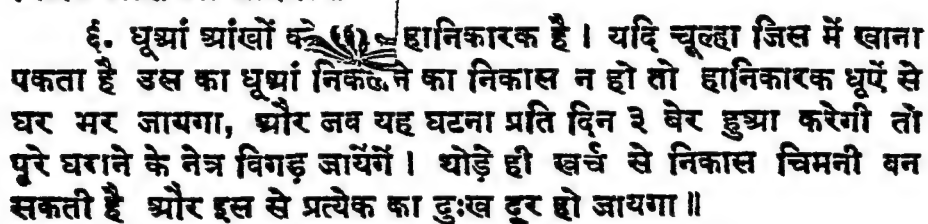 ६. धूआं आंखों के हानिकारक है । यदि चूल्हा जिस में खाना
पकता है उस का धूआं निकलने का निकास न हो तो हानिकारक धूएं से
घर भर जायगा, और जब यह घटना प्रति दिन ३ बेर हुआ करेगी तो
पूरे घराने के नेत्र बिगड़ जायेंगें । थोड़े ही खर्च से निकास चिमनी बन
सकती है और इस से प्रत्येक का दुःख दूर हो जायगा ॥